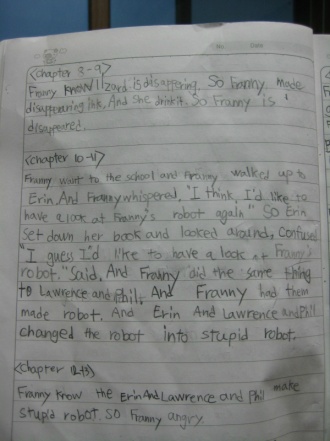 No. Date
<chapter 8-9>
Franny know lizard is disappering. So Franny made
disappearing ink, And She drink it. So Franny is
disapeared.
<chapter 10-11>
Franny want to the school and Franny walked up to
Erin And Franny whispered, "I think, I'd like to
have a look at Franny's robot again." So Erin
set down her book and looked around, confused
"I guess I'd like to have a look at Franny's
robot." Said, And Franny did the same thing
to Lawrence and Phil, And Franny had them
made robot. And Erin And Lawrence and Phil
changed the robot into stupid robot.
<chapter 12-13>
Franny know the Erin And Lawrence and Phil make
stupid robot. So Franny angry.